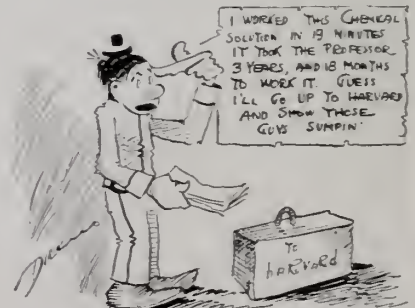 I WORKED THIS CHEMICAL
SOLUTION IN 19 MINUTES
IT TOOK THE PROFESSOR
3 YEARS, AND 18 MONTHS
TO WORK IT. GUESS
I'LL GO UP TO HARVARD
AND SHOW THOSE
GUYS SUMPIN'
TO
HARVARD